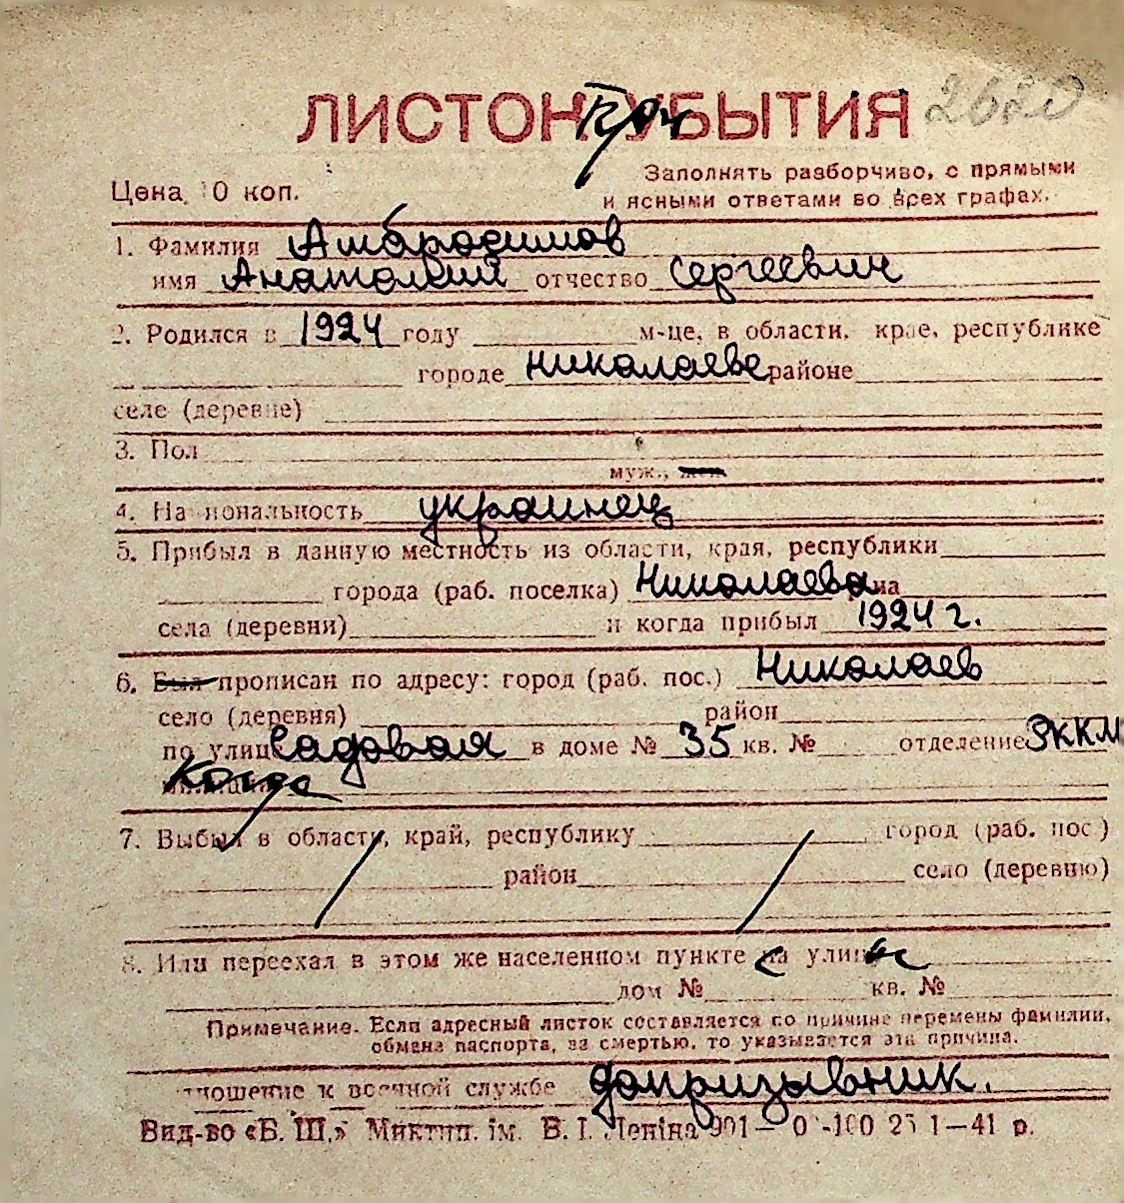 ЛИСТОК УБЫТИЯ 2620
Цена 10 коп.
Заполнять разборчиво, с прямыми
и ясными ответами во всех графах.
1. Фамилия Амбродимов
имя Анатолий отчество Сергеевич
2. Родился в 1924 году м-це, в области, крае, республике
городе Николаеве районе
селе (деревне)
3. Пол
муж., жен
4. Национальность украинец
5. Прибыл в данную местность из области, края, республики
города (раб. поселка) Николаева
села (деревни) и когда прибыл 1924 г.
6. Был прописан по адресу: город (раб. пос.) Николаев
село (деревня) район
по улице Садовая в доме № 35 кв. № отделение
7. Выбыл в область, край, республику город (раб. пос)
район село (деревню)
8. Или переехал в этом же населенном пункте на улицу
дом № кв. №
Примечание. Если адресный листок составляется по причине перемены фамилии,
обмена паспорта, за смертью, то указывается эта причина.
тношение к военной службе допризывник.
Вид-во «Б. Ш.» Миктип. ім. В. І. Леніна 901— -100 25 1—41 р.